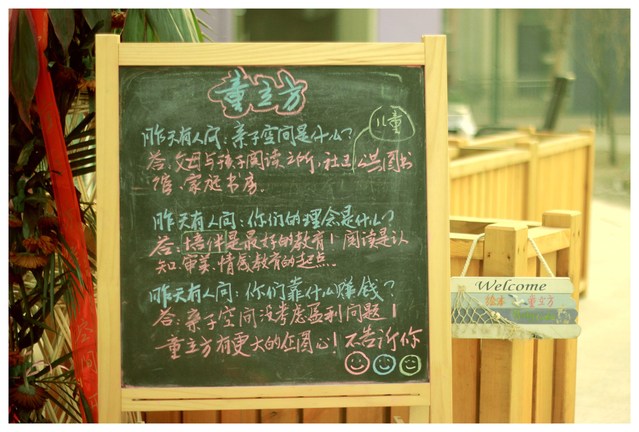 童立方
儿童
昨天有人问:亲子空间是什么?
答:父母与孩子阅读之所、社区公共图书
馆、家庭书房.
昨天有人问:你们的理念是什么?
答:培伴是最好的教育!阅读是认
知.审美.情感教育的起点.
昨天有人问:你们靠什么赚钱?
答:亲子空间没考虑盈利问题!
童立方有更大的企图心!不告诉你
Welcome
绘本 童立方